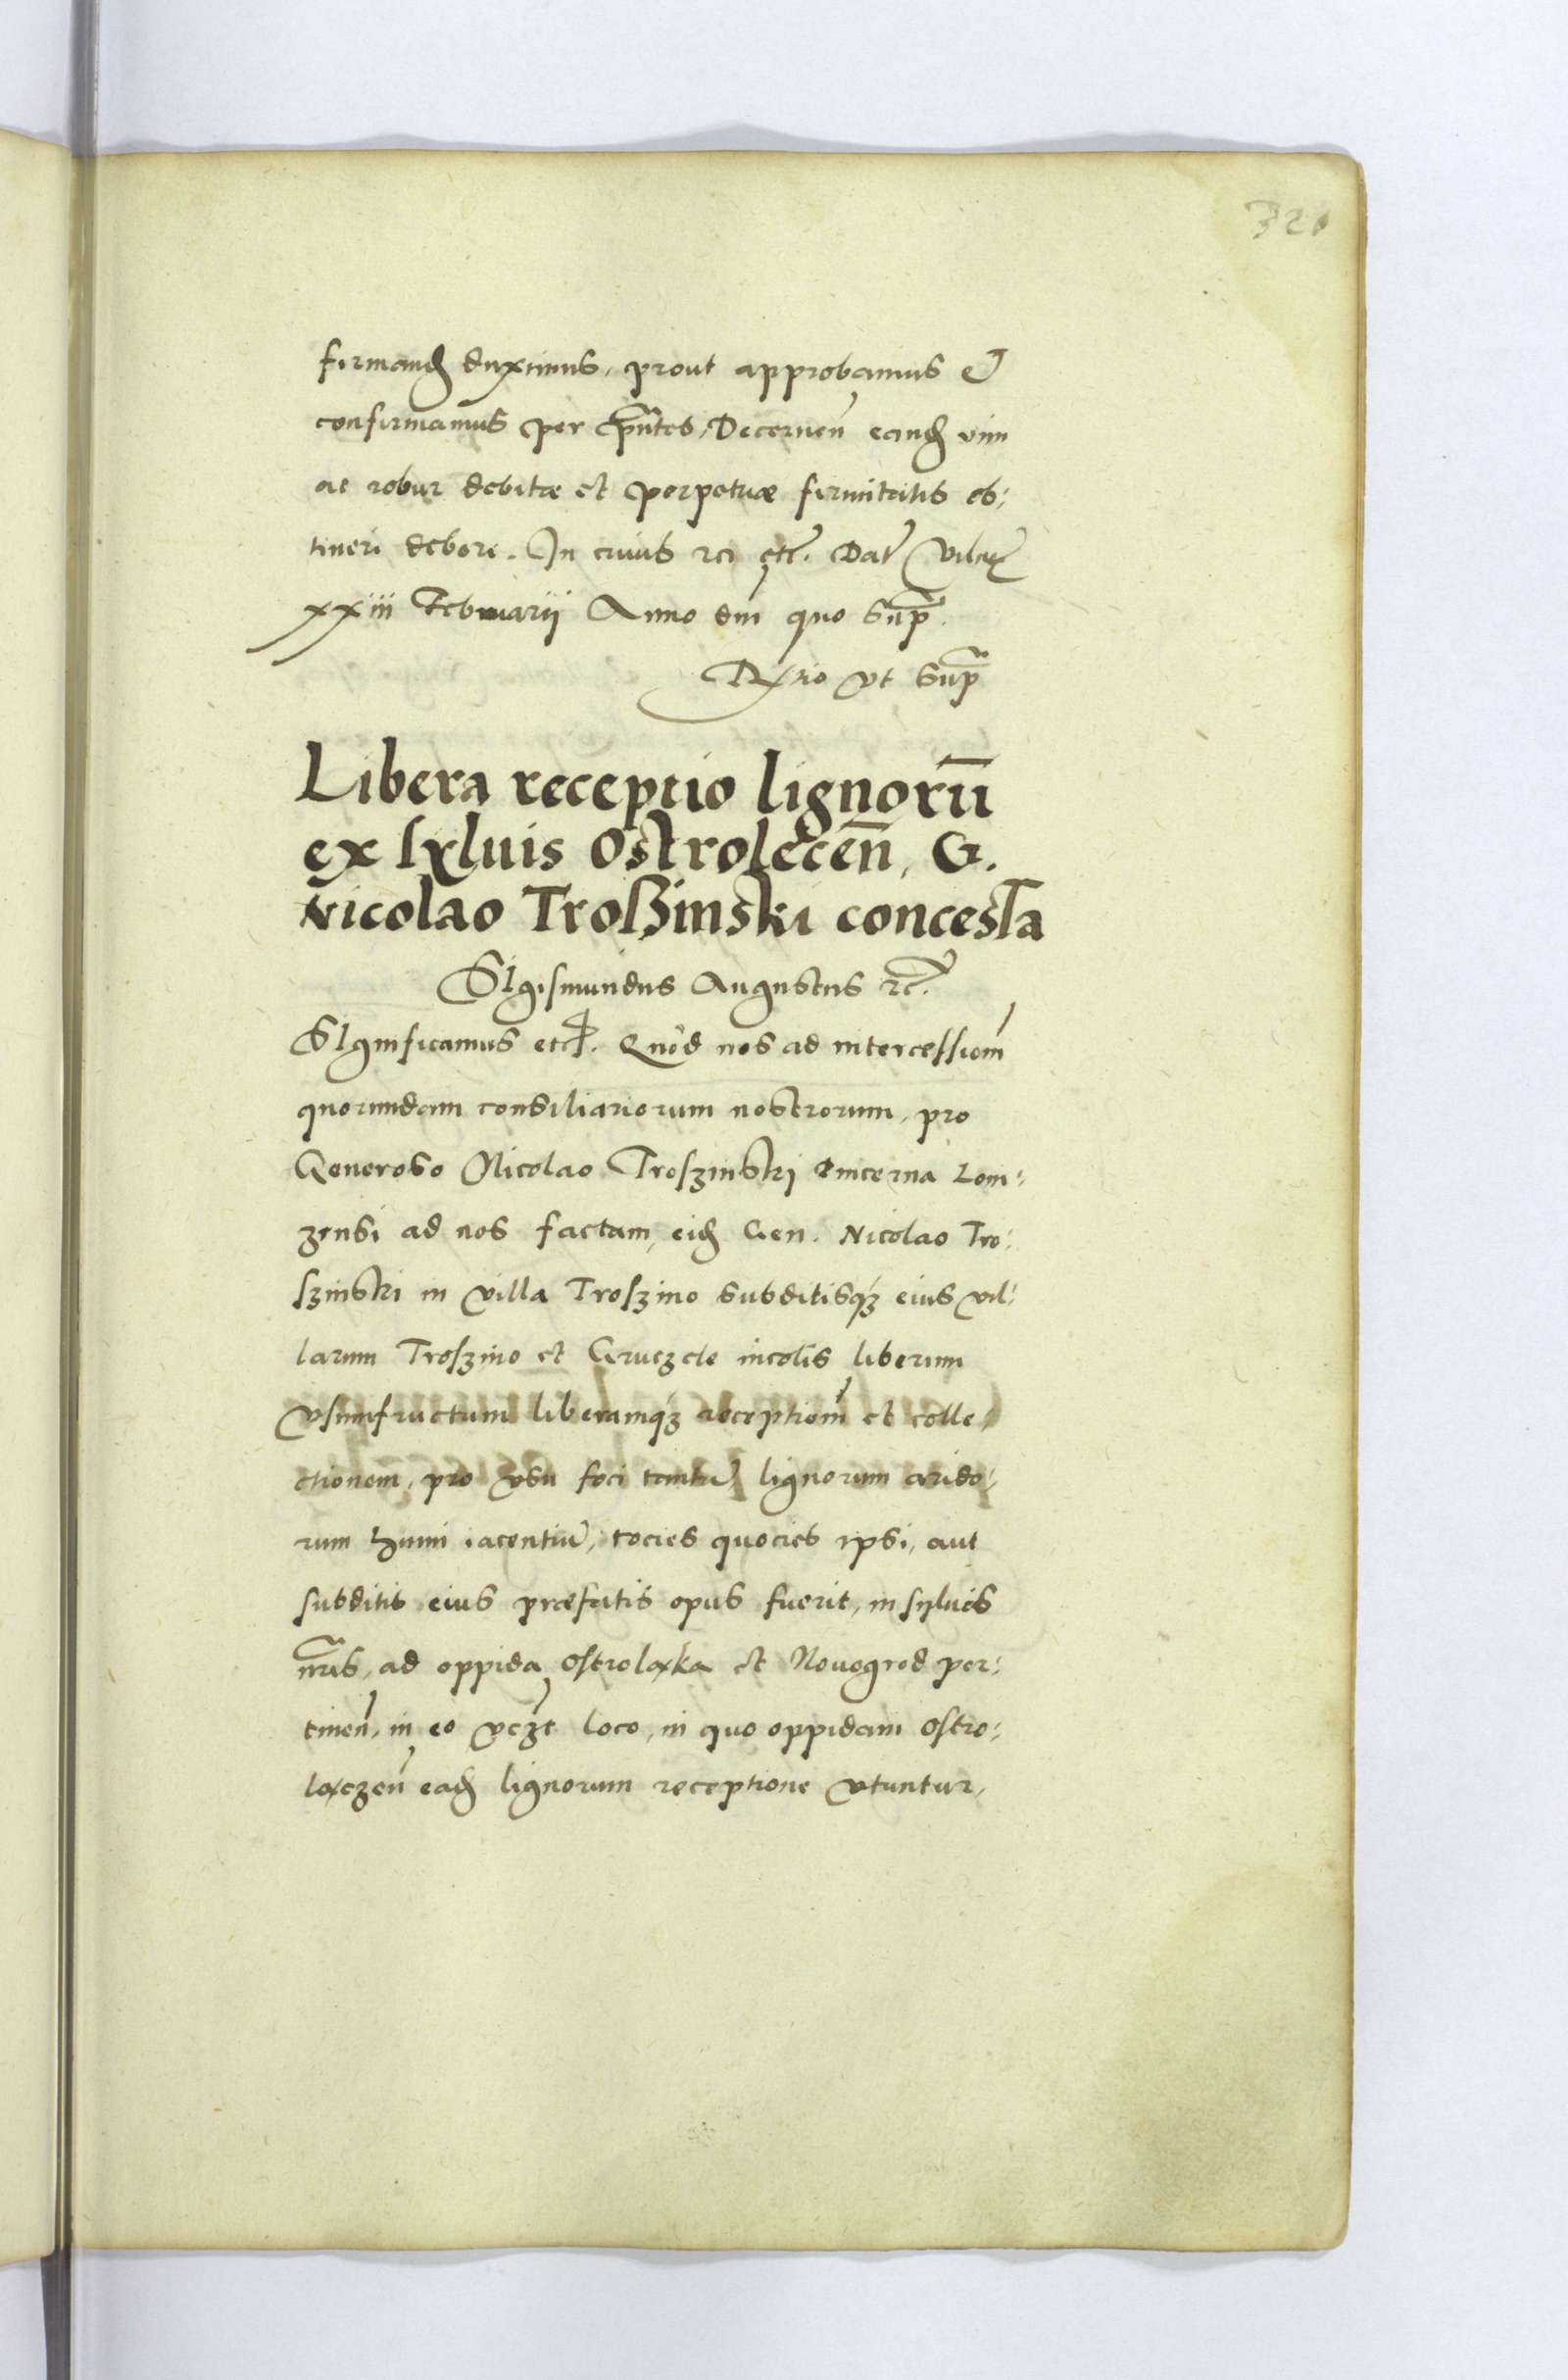 321
firmand duximus, prout approbamus et
confirmamus per pñtes, Decernen̄ eand vim
ac robur debitæ et perpetuæ firmitatis ob:
tineri debere. In cuius rei etc. Dat Vilnæ
xxiii Februarii Anno dm̄ quo sup̄.
Rĩo vt sup̄
Libera receptio lignorū
ex sylvis Ostrolecen̄, G.
Nicolao Trosżinski concessa
SIgismundus Augustus rc.
SIgnificamus etc. Quod nos ad intercessiom̄
quorundam consiliariorum nostrorum, pro
Generoso Nicolao Troszinskj Pincerna Lom:
zensi ad nos factam, eid Gen. Nicolao Tro:
szinski in villa Troszino subditisq́z eius vil:
larum Troszino et Gruczele incolis liberum
vsumfructum liberamq́z receptiom̄ et colle:
ctionem, pro vsu foci tantū lignorum arido:
rum humi iacentiū, tocies quocies ipsi, aut
subditis eius præfatis opus fuerit, in syluis
nr̄is, ad oppida Ostroląka et Nouogrod per:
tinen̄, in eo vczt loco, in quo oppidani Ostro:
lączen̄ ead lignorum receptione vtuntur,